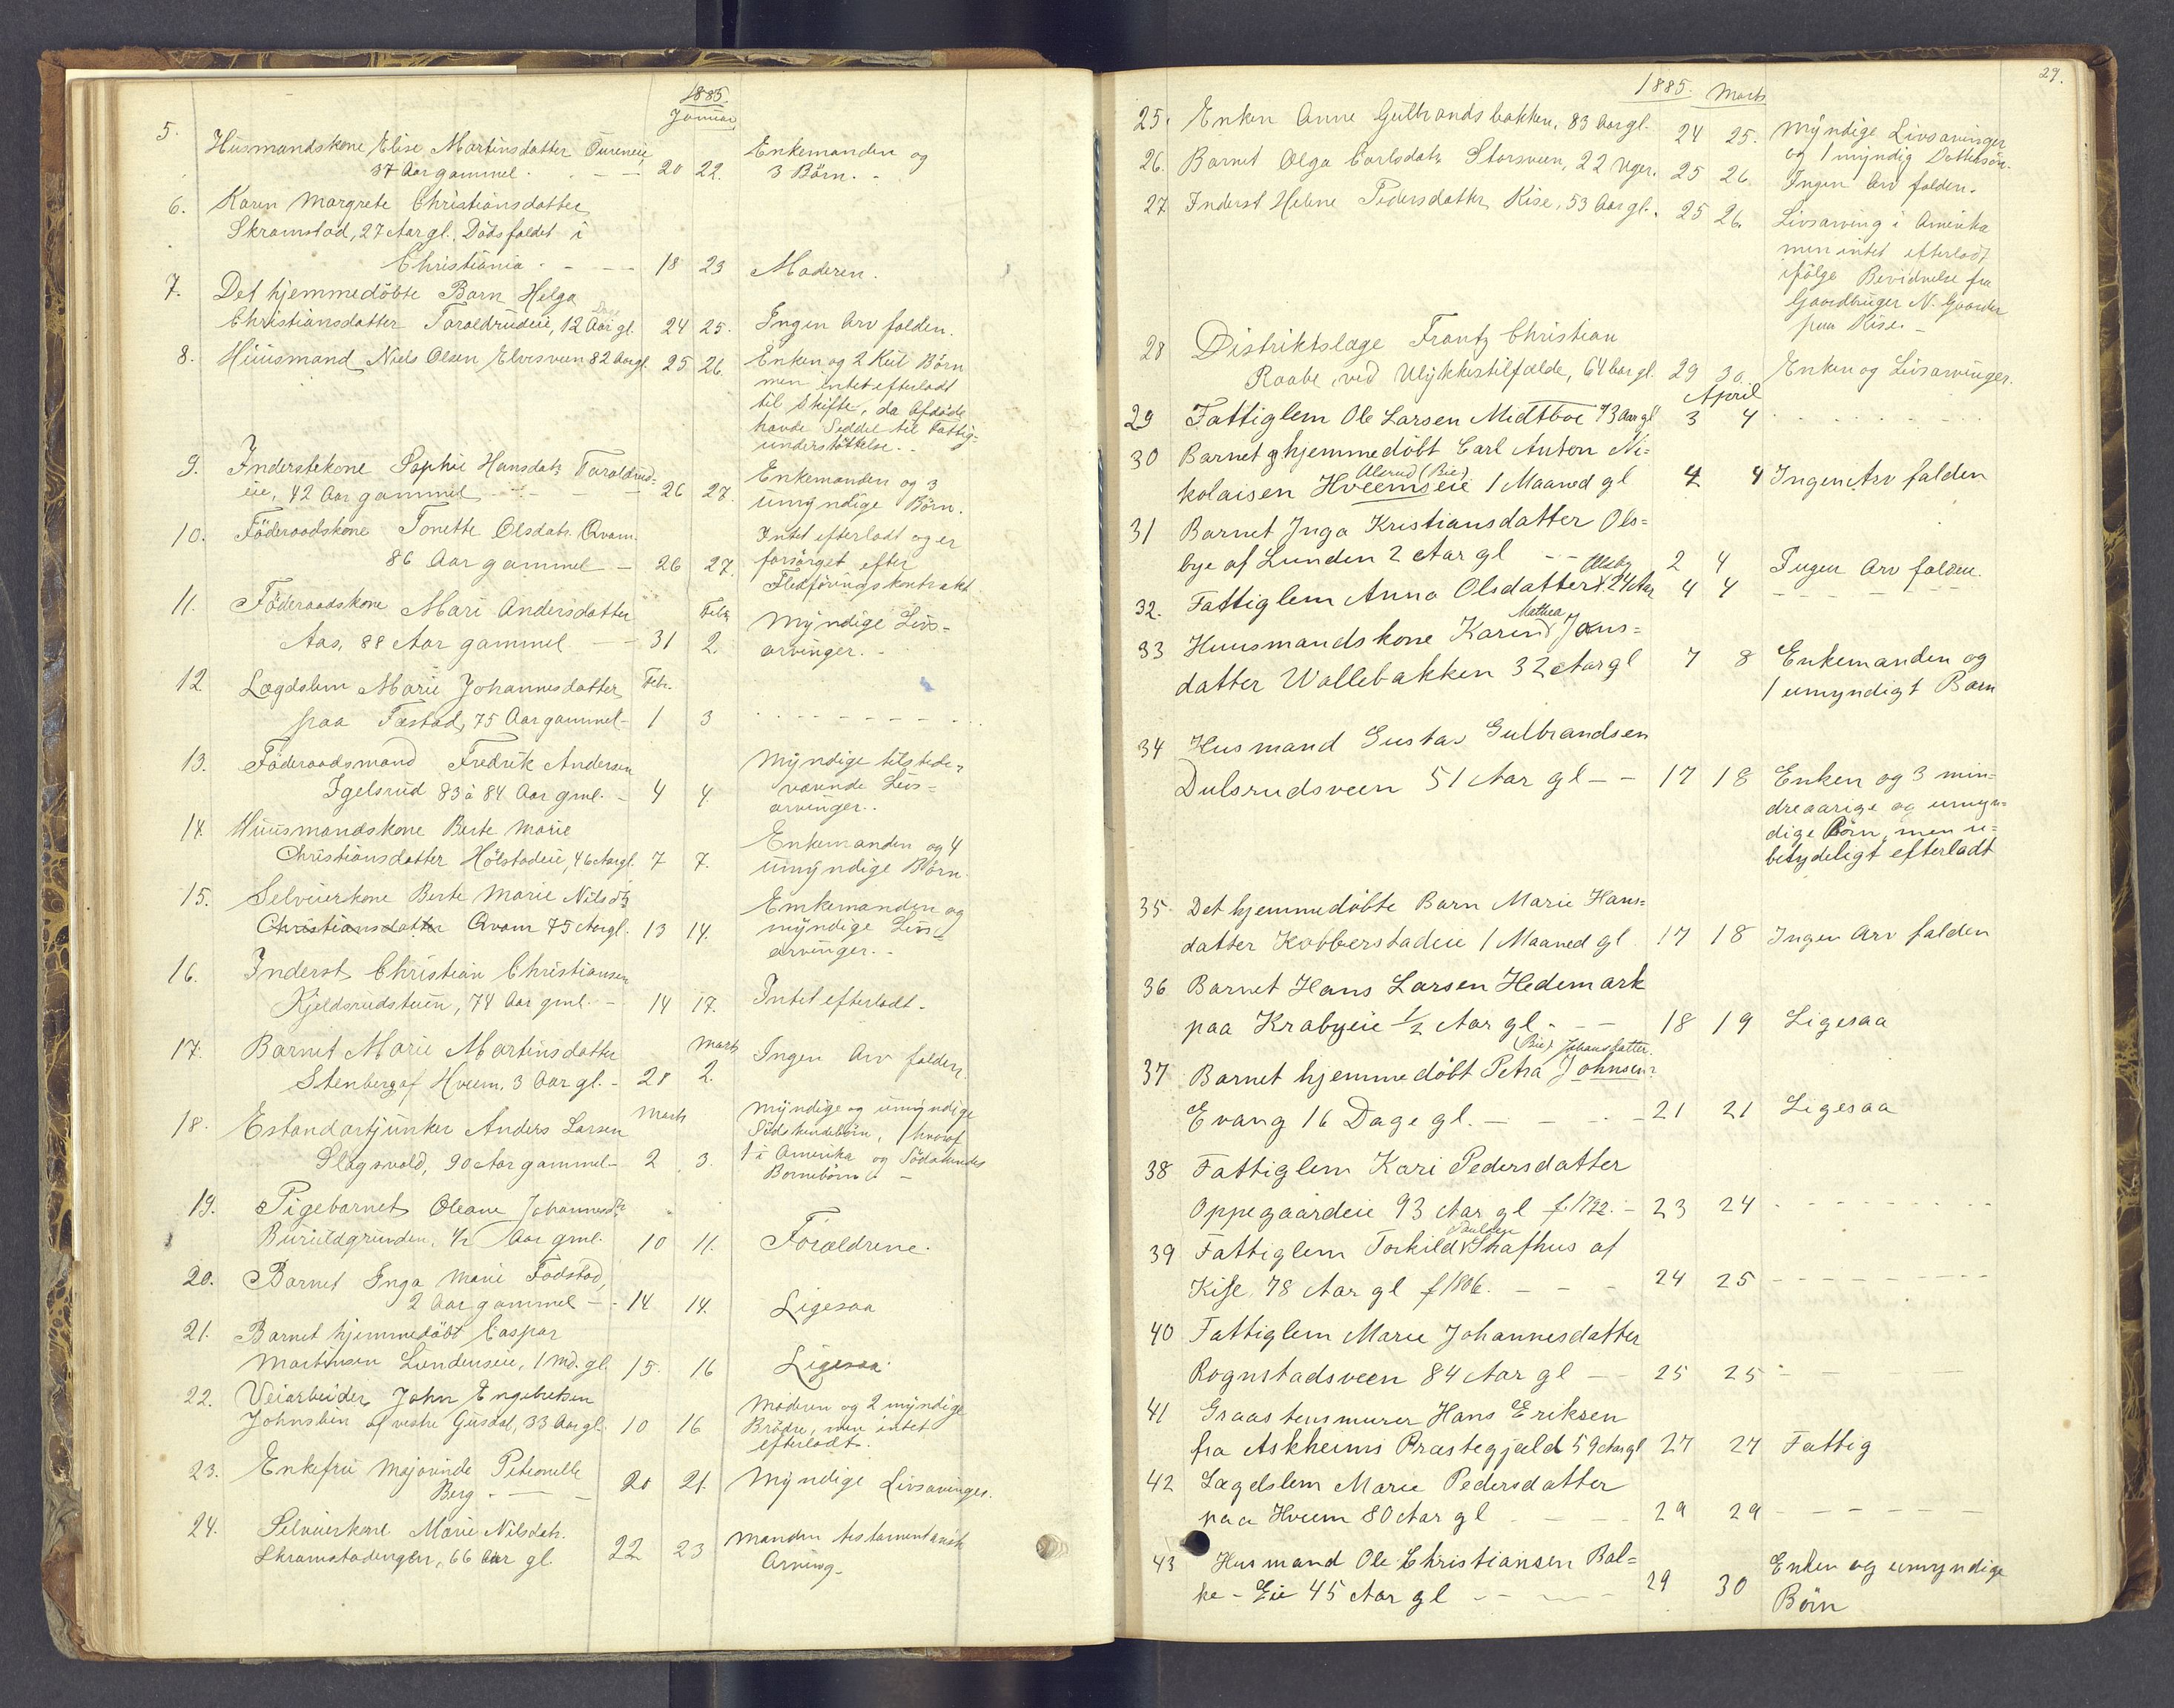 1885.
Januar
5. Husmandskone Elise Martinsdatter
37 Aar gammel. 20 22. Enkemanden og
3 Börn.
6. Karen Margrete Christiansdatter
Skramstad, 27 Aar gl. Dödsfaldet i
Christiania 18 23 Moderen.
7. Det hjemmedöbte Barn Helga
Christiansdatter Taraldrudeie, 12 Aar gl. 24 25. Ingen Arv falden.
8. Huusmand Niels Olsen Elvesveen 82 Aar gl. 25 26. Enken og 2 Kuld Börn
men intet efterladt
til Skifte, da Afdöde
havde Seddel til Fattig-
understöttelse.
9. Inderstekone Sophie Hansdatr Taraldrud-
eie, 42 Aar gammel 26 27. Enkemanden og 3
umyndige Börn.
10. Föderaadskone Tonette Olsdatr. Qvam.
86 Aar gammel 26 27. Intet efterladt og er
forsörget efter
Fledföringskontrakt
11. Föderaadskone Mari Andersdatter Febr.
Aas, 88 Aar gammel 31 2. Myndige Livs-
arvinger.
12 Lægdslem Marie Johannesdatter Febr.
paa Fæstad, 75 Aar gammel 1 3
13. Föderaadsmand Fredrik Andersen
Igelsrud 83 à 84 Aar gml. 4 4. Myndige tilstede-
værende Livs-
arvinger.
14. Huusmandskone Berte Marie
Christiansdatter Hölstadeie, 46 Aar gl. 7 7. Enkemanden og 4
umyndige Börn.
15. Selveierkone Berte Marie Nilsdtr
Christiansdatter Qvam 75 Aar gl. 13 14. Enkemanden og
myndige Livs-
arvinger.
16. Inderst Christian Christiansen
Kjeldsrudstuen, 74 Aar gml. 14 17. Intet efterladt.
17. Barnet Marie Martinsdatter Marts
Stenberg af Hveem, 3 Aar gl. 28 2. Ingen Arv falden.
18. Estandartjunker Anders Larsen Marts
Slagsvold, 90 Aar gammel 2 3. Myndige og umyndige
Södskendebörn, hvoraf
1 i Amerika og Södskendes
Börnebörn
19. Pigebarnet Oleane Johannesdtr
½ Aar gml. 10 11. Forældrene.
20. Barnet Inga Marie Fodstad,
2 Aar gammel 14 14. Ligesaa
21. Barnet hjemmedöbt Caspar
Martinsen Lundenseie, 1 Md. gl. 15. 16 Ligesaa
22. Veiarbeider John Engebretsen
Johnslien af vestre Gusdal, 33 Aar gl. 10 16 Moderen og 2 myndige
Brödre, men intet
efterladt.
23. Enkefru Majorinde Petronelle
Berg 20 21. Myndige Livsarvinger.
24. Selveierkone Marie Nilsdatr.
Skramstadengen, 66 Aar gl. 22 23 Manden testamentarisk
Arving.
29.
1885. Marts
25. Enken Anne Gulbrandsbakken, 83 Aar gl. 24 25. Myndige Livsarvinger
og 1 myndig Dattersön.
26. Barnet Olga Carlsdatr Storsveen, 22 Uger. 25 26. Ingen Arv falden.
27. Inderst Helene Pedersdatter Kise, 53 Aar gl. 25 26. Livsarving i Amerika
men intet efterladt
ifölge Bevidnelse fra
Gaardbruger N. Gaarder
paa Kise.
28 Distriktslæge Frantz Christian
Raabe, ved Ulykkestilfælde, 64 Aar gl. 29 30. Enken og Livsarvinger.
April
29 Fattiglem Ole Larsen Midtboe 73 Aar gl 3 4
30 Barnet hjemmedöbt Carl Anton Ni-
Alerud (Bie)
kolaisen Hveemseie 1 Maaned gl 4 4 Ingen Arv falden
31 Barnet Inga Kristiansdatter Ols-
bye af Lunden 2 Aar gl 2 4 Ingen Arv falden.
32. Fattiglem Anna Olsdatter 74 Aar 4 4
Mathea
33 Huusmandskone Karen Jens-
datter Wollebakken 32 Aar gl 7 8 Enkemanden og
1 umyndigt Barn
34 Husmand Gustav Gulbrandsen
Dulsrudsveen 51 Aar gl 17 18 Enken og 3 min-
dreaarige og umyn-
dige Börn, men u-
betydeligt efterladt
35. Det hjemmedöbte Barn Marie Hans-
datter Kobberstadeie 1 Maaned gl 17 18 Ingen Arv falden
36 Barnet Hans Larsen Hedemark
paa Krabyeie ½ Aar gl 18 19 Ligesaa
(Bie) Johansdatter.
37 Barnet hjemmedöbt Petra Johnsen
Evang 16 Dage gl. 21 21 Ligesaa
38 Fattiglem Kari Pedersdatter
Oppegaardeie 93 Aar gl f. 1792. 23 24
Paulsen
39 Fattiglem Torkild Skafhus af
Kise 78 Aar gl f 1806. 24 25
40 Fattiglem Marie Johannesdatter
Rognstadsveen 84 Aar gl 25 25
41 Graastensmurer Hans Eriksen
fra Askheims Præstegjæld 59 Aar gl 27 27 Fattig
42 Lægdslem Marie Pedersdatter
paa Hveem 80 Aar gl 29 29
43 Husmand Ole Christiansen Bal-
ke-Eie 45 Aar gl 29 30 Enken og umyndige
Börn